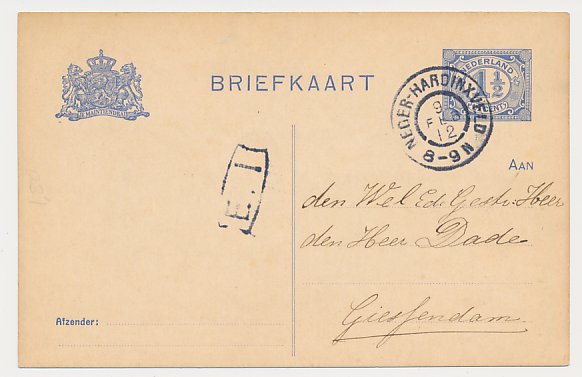 JE MAINTIENDRAI
BRIEFKAART
NEDERLAND
1½
CENT
NEDER-HARDINXVELD
9
FE
12
8-9N
E. I
AAN
den Wel Ed. Gestr. Heer
den Heer Dade
Giessendam
Afzender: